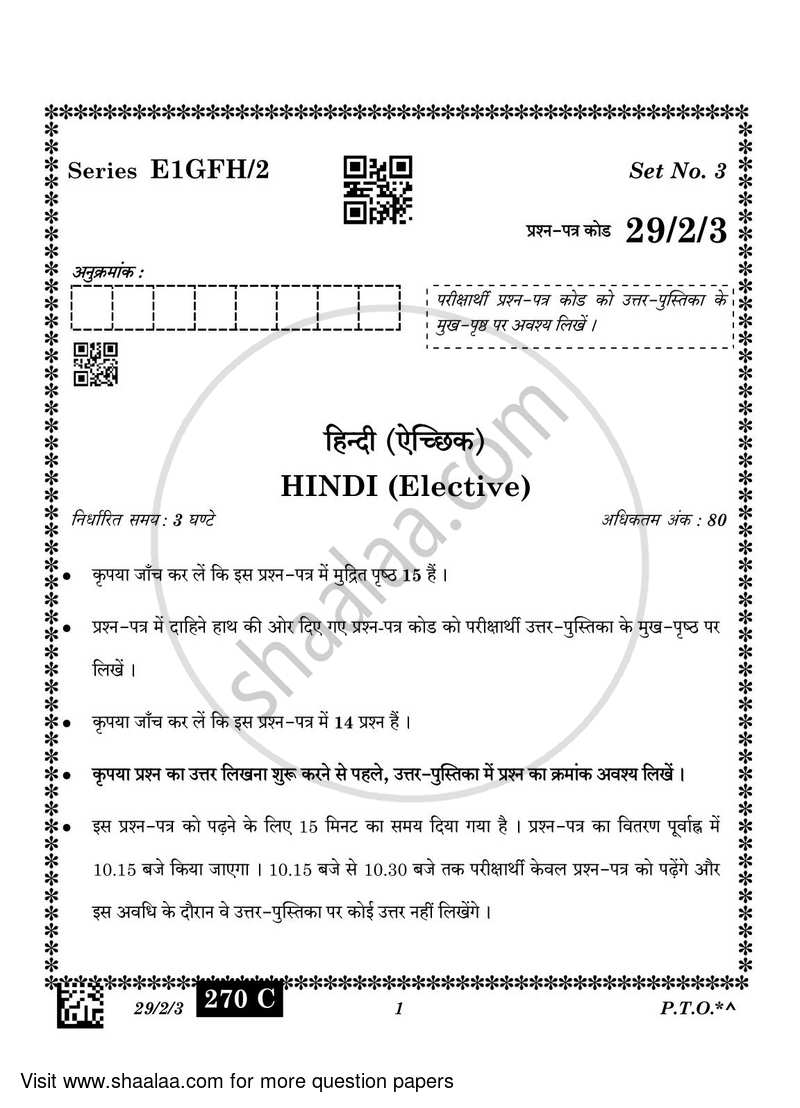 Series E1GFH/2
Set No. 3
प्रश्न-पत्र कोड 29/2/3
अनुक्रमांक :
परीक्षार्थी प्रश्न-पत्र कोड को उत्तर-पुस्तिका के
मुख-पृष्ठ पर अवश्य लिखें ।
हिन्दी (ऐच्छिक)
HINDI (Elective)
निर्धारित समय : 3 घण्टे
अधिकतम अंक : 80
• कृपया जाँच कर लें कि इस प्रश्न-पत्र में मुद्रित पृष्ठ 15 हैं ।
• प्रश्न-पत्र में दाहिने हाथ की ओर दिए गए प्रश्न-पत्र कोड को परीक्षार्थी उत्तर-पुस्तिका के मुख-पृष्ठ पर
लिखें ।
• कृपया जाँच कर लें कि इस प्रश्न-पत्र में 14 प्रश्न हैं ।
• कृपया प्रश्न का उत्तर लिखना शुरू करने से पहले, उत्तर-पुस्तिका में प्रश्न का क्रमांक अवश्य लिखें ।
• इस प्रश्न-पत्र को पढ़ने के लिए 15 मिनट का समय दिया गया है । प्रश्न-पत्र का वितरण पूर्वाह्न में
10.15 बजे किया जाएगा । 10.15 बजे से 10.30 बजे तक परीक्षार्थी केवल प्रश्न-पत्र को पढ़ेंगे और
इस अवधि के दौरान वे उत्तर-पुस्तिका पर कोई उत्तर नहीं लिखेंगे ।
shaalaa.com
29/2/3
270 C
1
P.T.O.*^
Visit www.shaalaa.com for more question papers